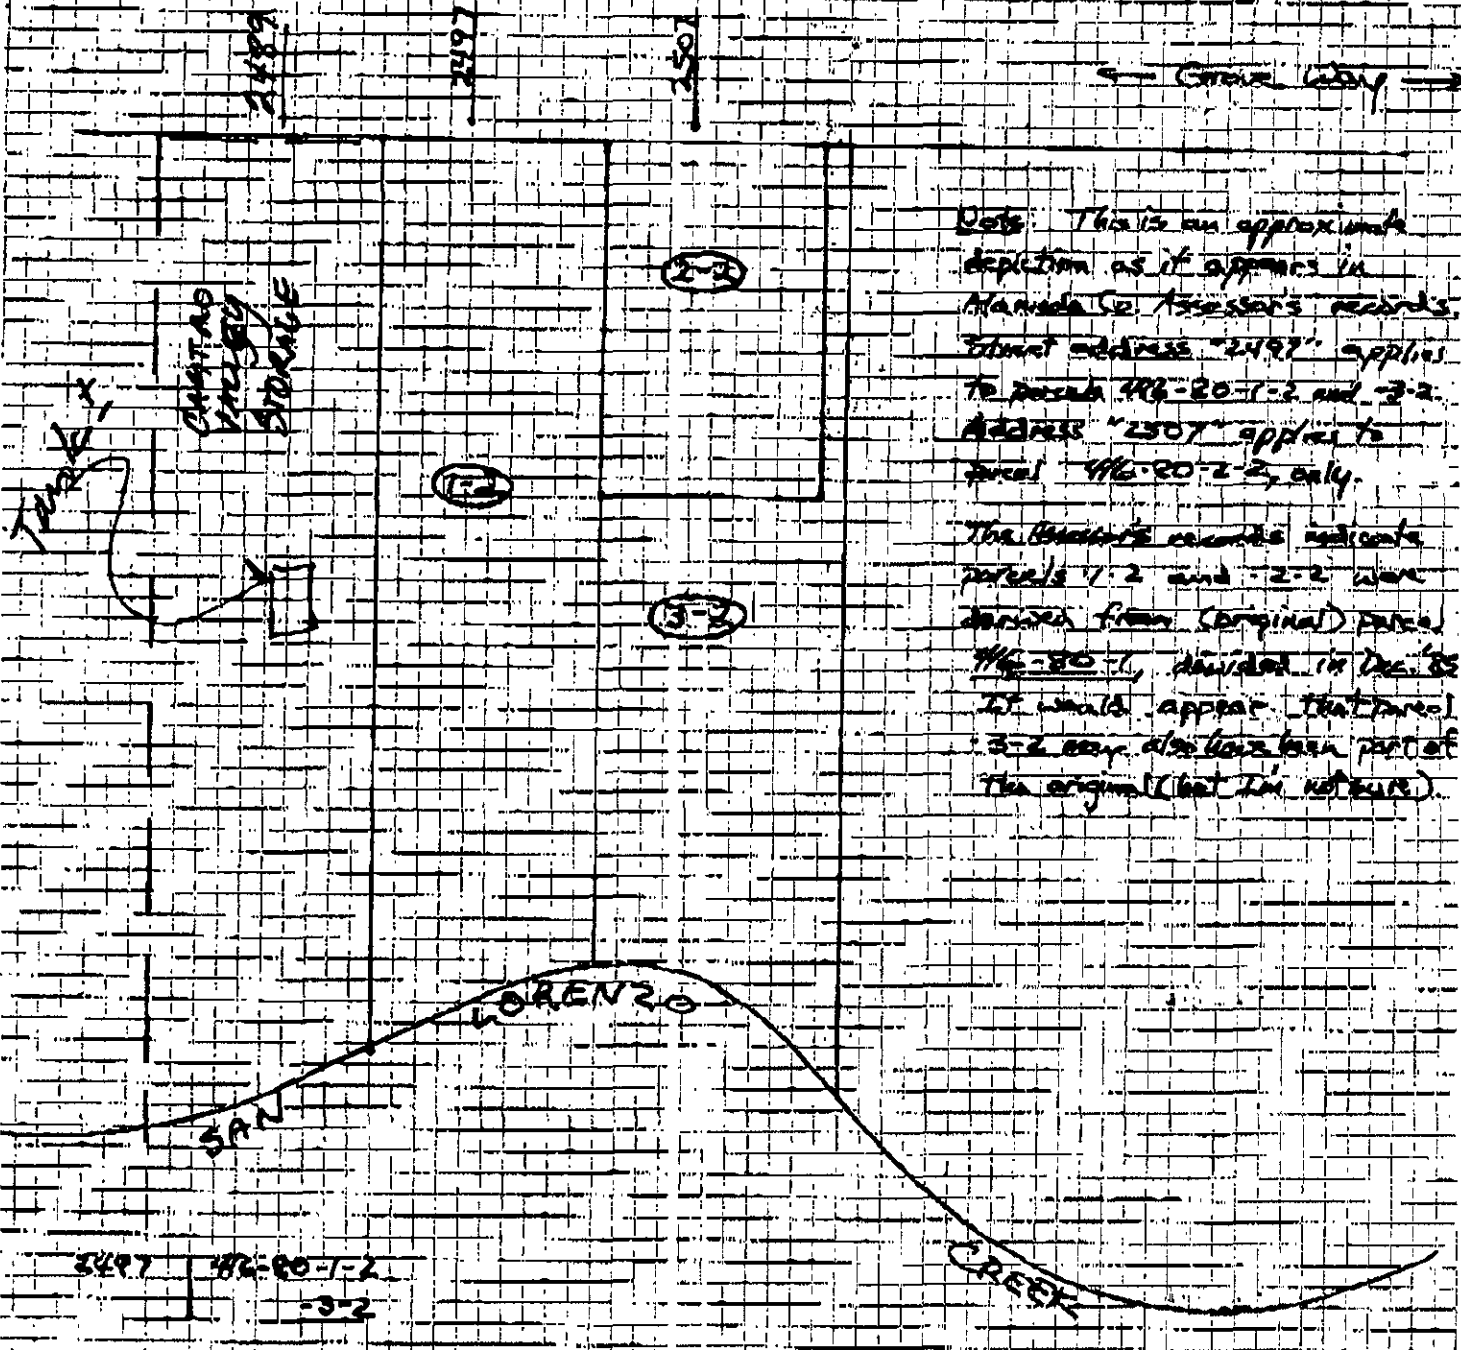 2489
2497
2507
← Grove Way →
Note: This is an approximate
depiction as it appears in
Alameda Co. Assessors records.
Street address "2497" applies
to parcels 416-80-1-2 and -3-2.
Address "2507" applies to
parcel 416-80-2-2, only.
The Assessor's records indicate
parcels 1-2 and -2-2 were
derived from (original) parcel
416-80-1, divided in Dec. '85
It would appear that parcel
-3-2 may also have been part of
the original (but I'm not sure).
2-2
CASTRO
VALLEY
STORAGE
1-2
3-2
SAN LORENZO CREEK
2497 | 416-80-1-2
-3-2